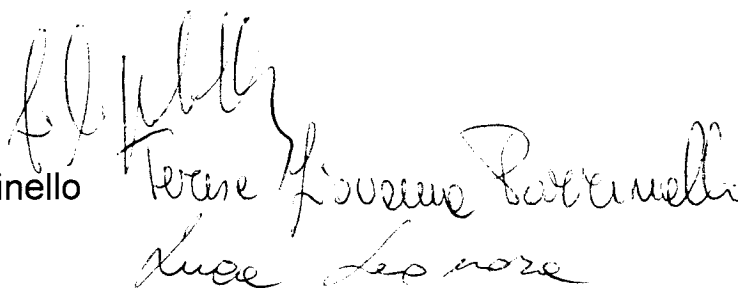 inello Teresa Giovanna Parrinello
Luca Leonora